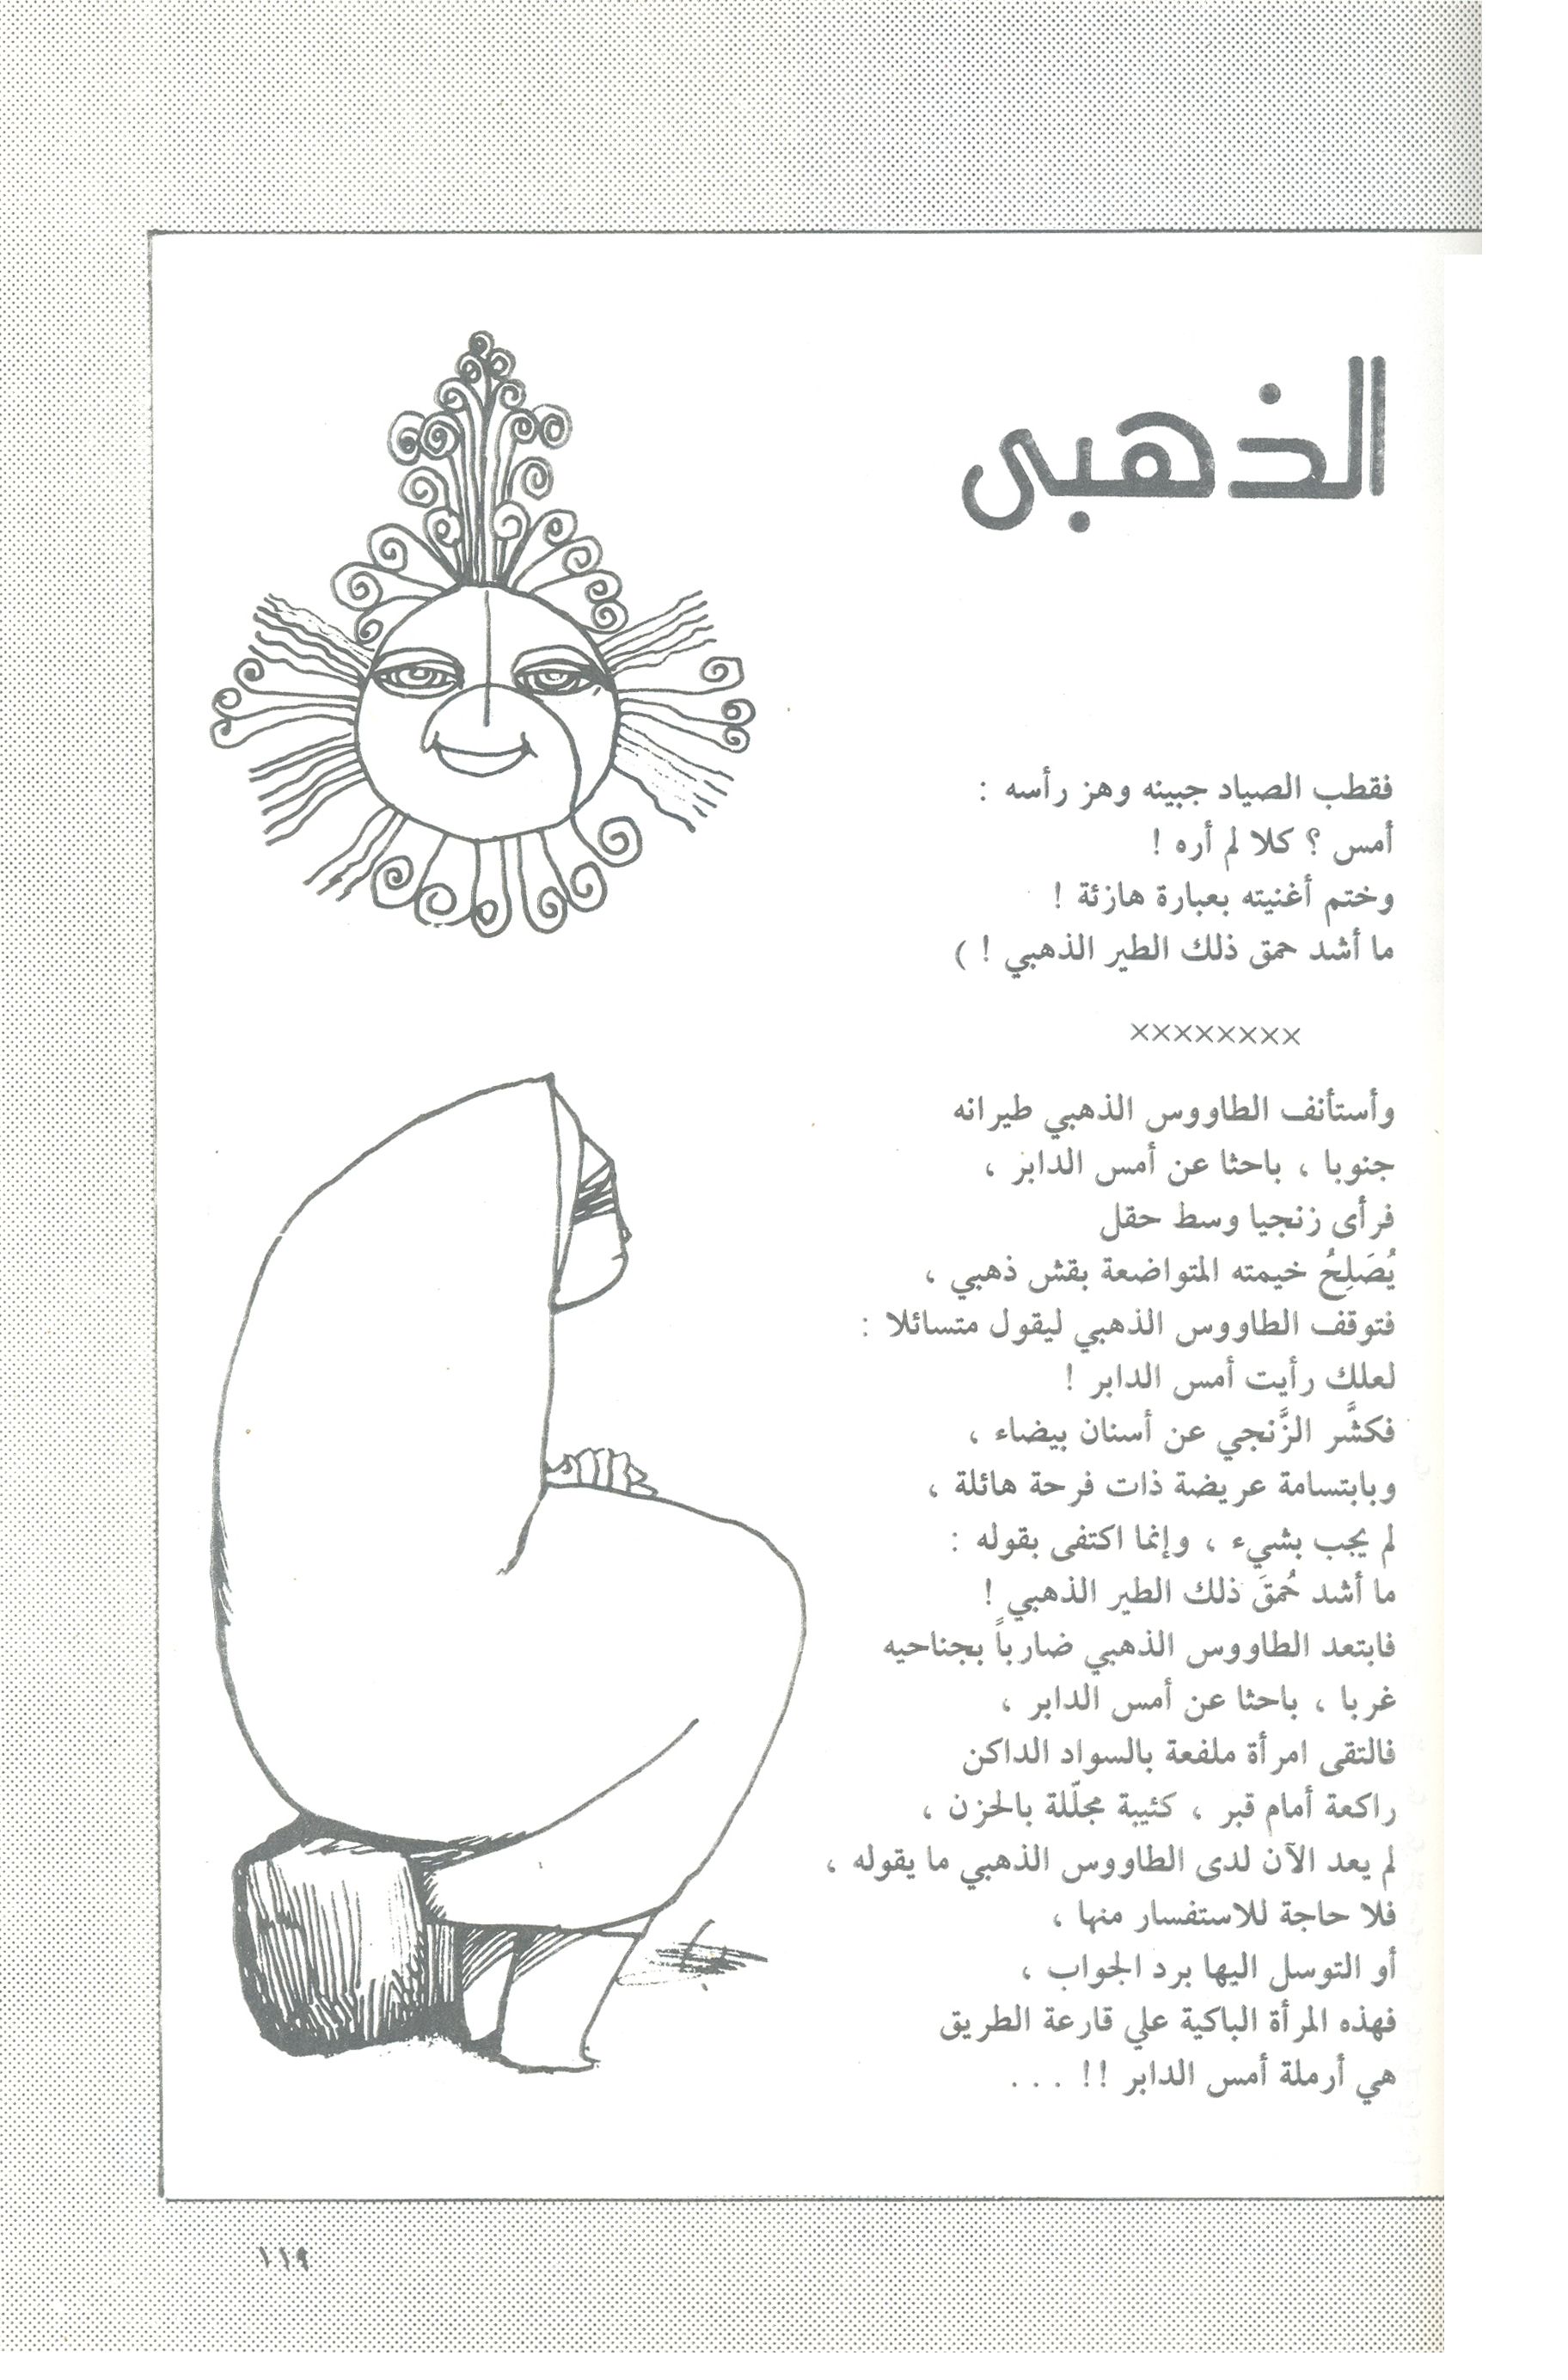 الذهبى
فقطب الصياد جبينه وهز رأسه :
أمس ؟ كلا لم أره !
وختم أغنيته بعبارة هازئة !
ما أشد حمق ذلك الطير الذهبي ! )
××××××××
وأستأنف الطاووس الذهبي طيرانه
جنوبا ، باحثا عن أمس الدابر ،
فرأى زنجيا وسط حقل
يُصَلِحُ خيمته المتواضعة بقش ذهبي ،
فتوقف الطاووس الذهبي ليقول متسائلا :
لعلك رأيت أمس الدابر !
فكشَّر الزَّنجي عن أسنان بيضاء ،
وبابتسامة عريضة ذات فرحة هائلة ،
لم يجب بشيء ، وإنما اكتفى بقوله :
ما أشد حُمقَ ذلك الطير الذهبي !
فابتعد الطاووس الذهبي ضارباً بجناحيه
غربا ، باحثا عن أمس الدابر ،
فالتقى امرأة ملفعة بالسواد الداكن
راكعة أمام قبر ، كئيبة مجلّلة بالحزن ،
لم يعد الآن لدى الطاووس الذهبي ما يقوله ،
فلا حاجة للاستفسار منها ،
أو التوسل اليها برد الجواب ،
فهذه المرأة الباكية علي قارعة الطريق
هي أرملة أمس الدابر !! . . .
١١٩